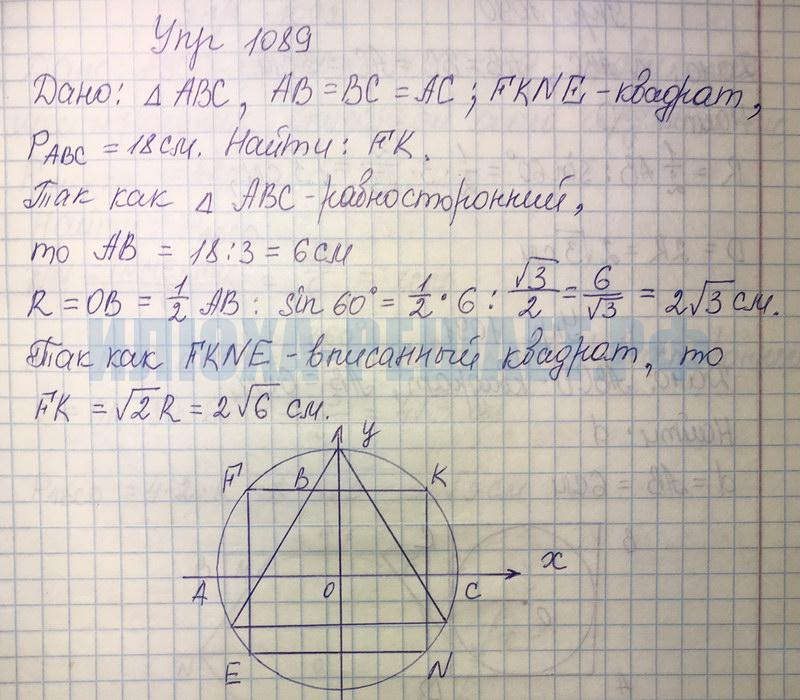 Упр 1089
Дано: △ ABC, AB = BC = AC; FKNE - квадрат,
P_ABC = 18 см. Найти: FK.
Так как △ ABC - равносторонний,
то AB = 18 : 3 = 6 см
R = OB = 1/2 AB : sin 60° = 1/2 · 6 : √3/2 = 6/√3 = 2√3 см.
Так как FKNE - вписанный квадрат, то
FK = √2 R = 2√6 см.
y
F B K
x
A O C
E N